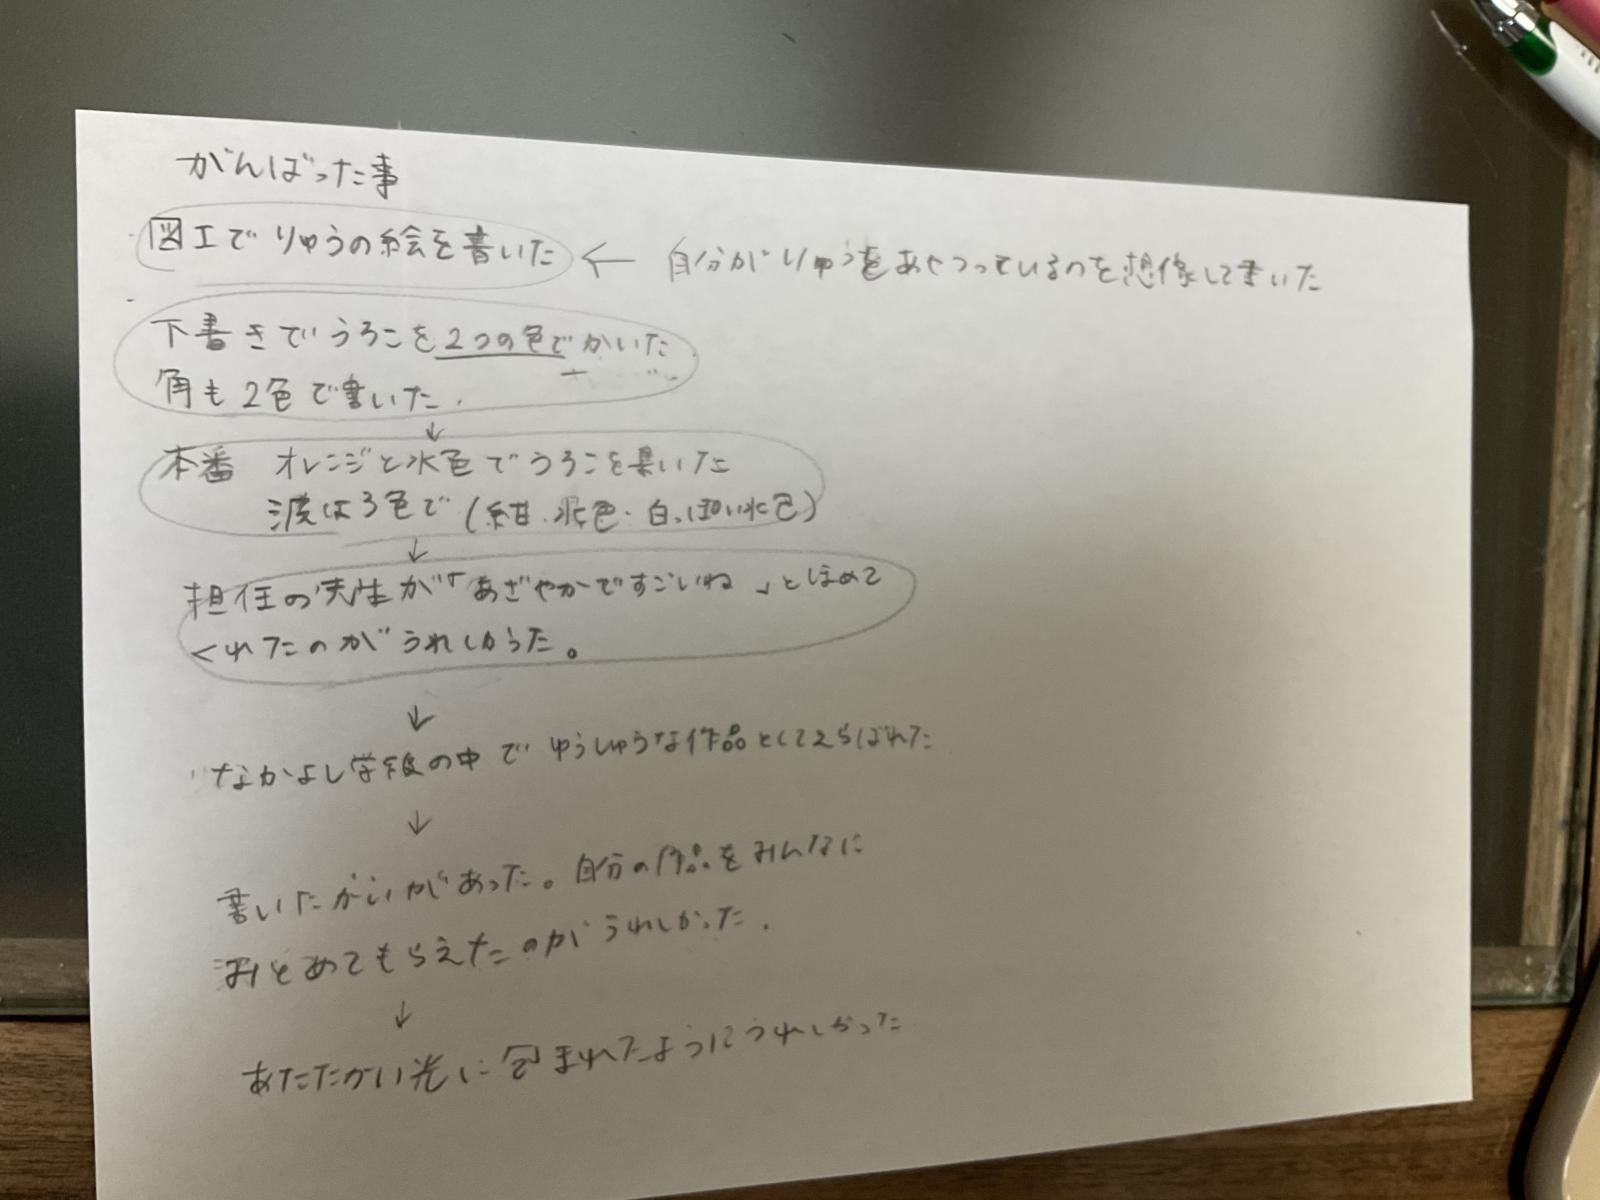 がんばった事
図工でりゅうの絵を書いた ← 自分がりゅうをあやつっているのを想像して書いた
下書きでうろこを2つの色でかいた
角も2色で書いた.
↓
本番 オレンジと水色でうろこを書いた
波は3色で(紺・水色・白っぽい水色)
↓
担任の先生が「あざやかですごいね」とほめて
くれたのがうれしかった。
↓
なかよし学級の中でゆうしゅうな作品としてえらばれた
↓
書いたかいがあった。自分の作品をみんなに
みとめてもらえたのがうれしかった.
↓
あたたかい光に包まれたようにうれしかった